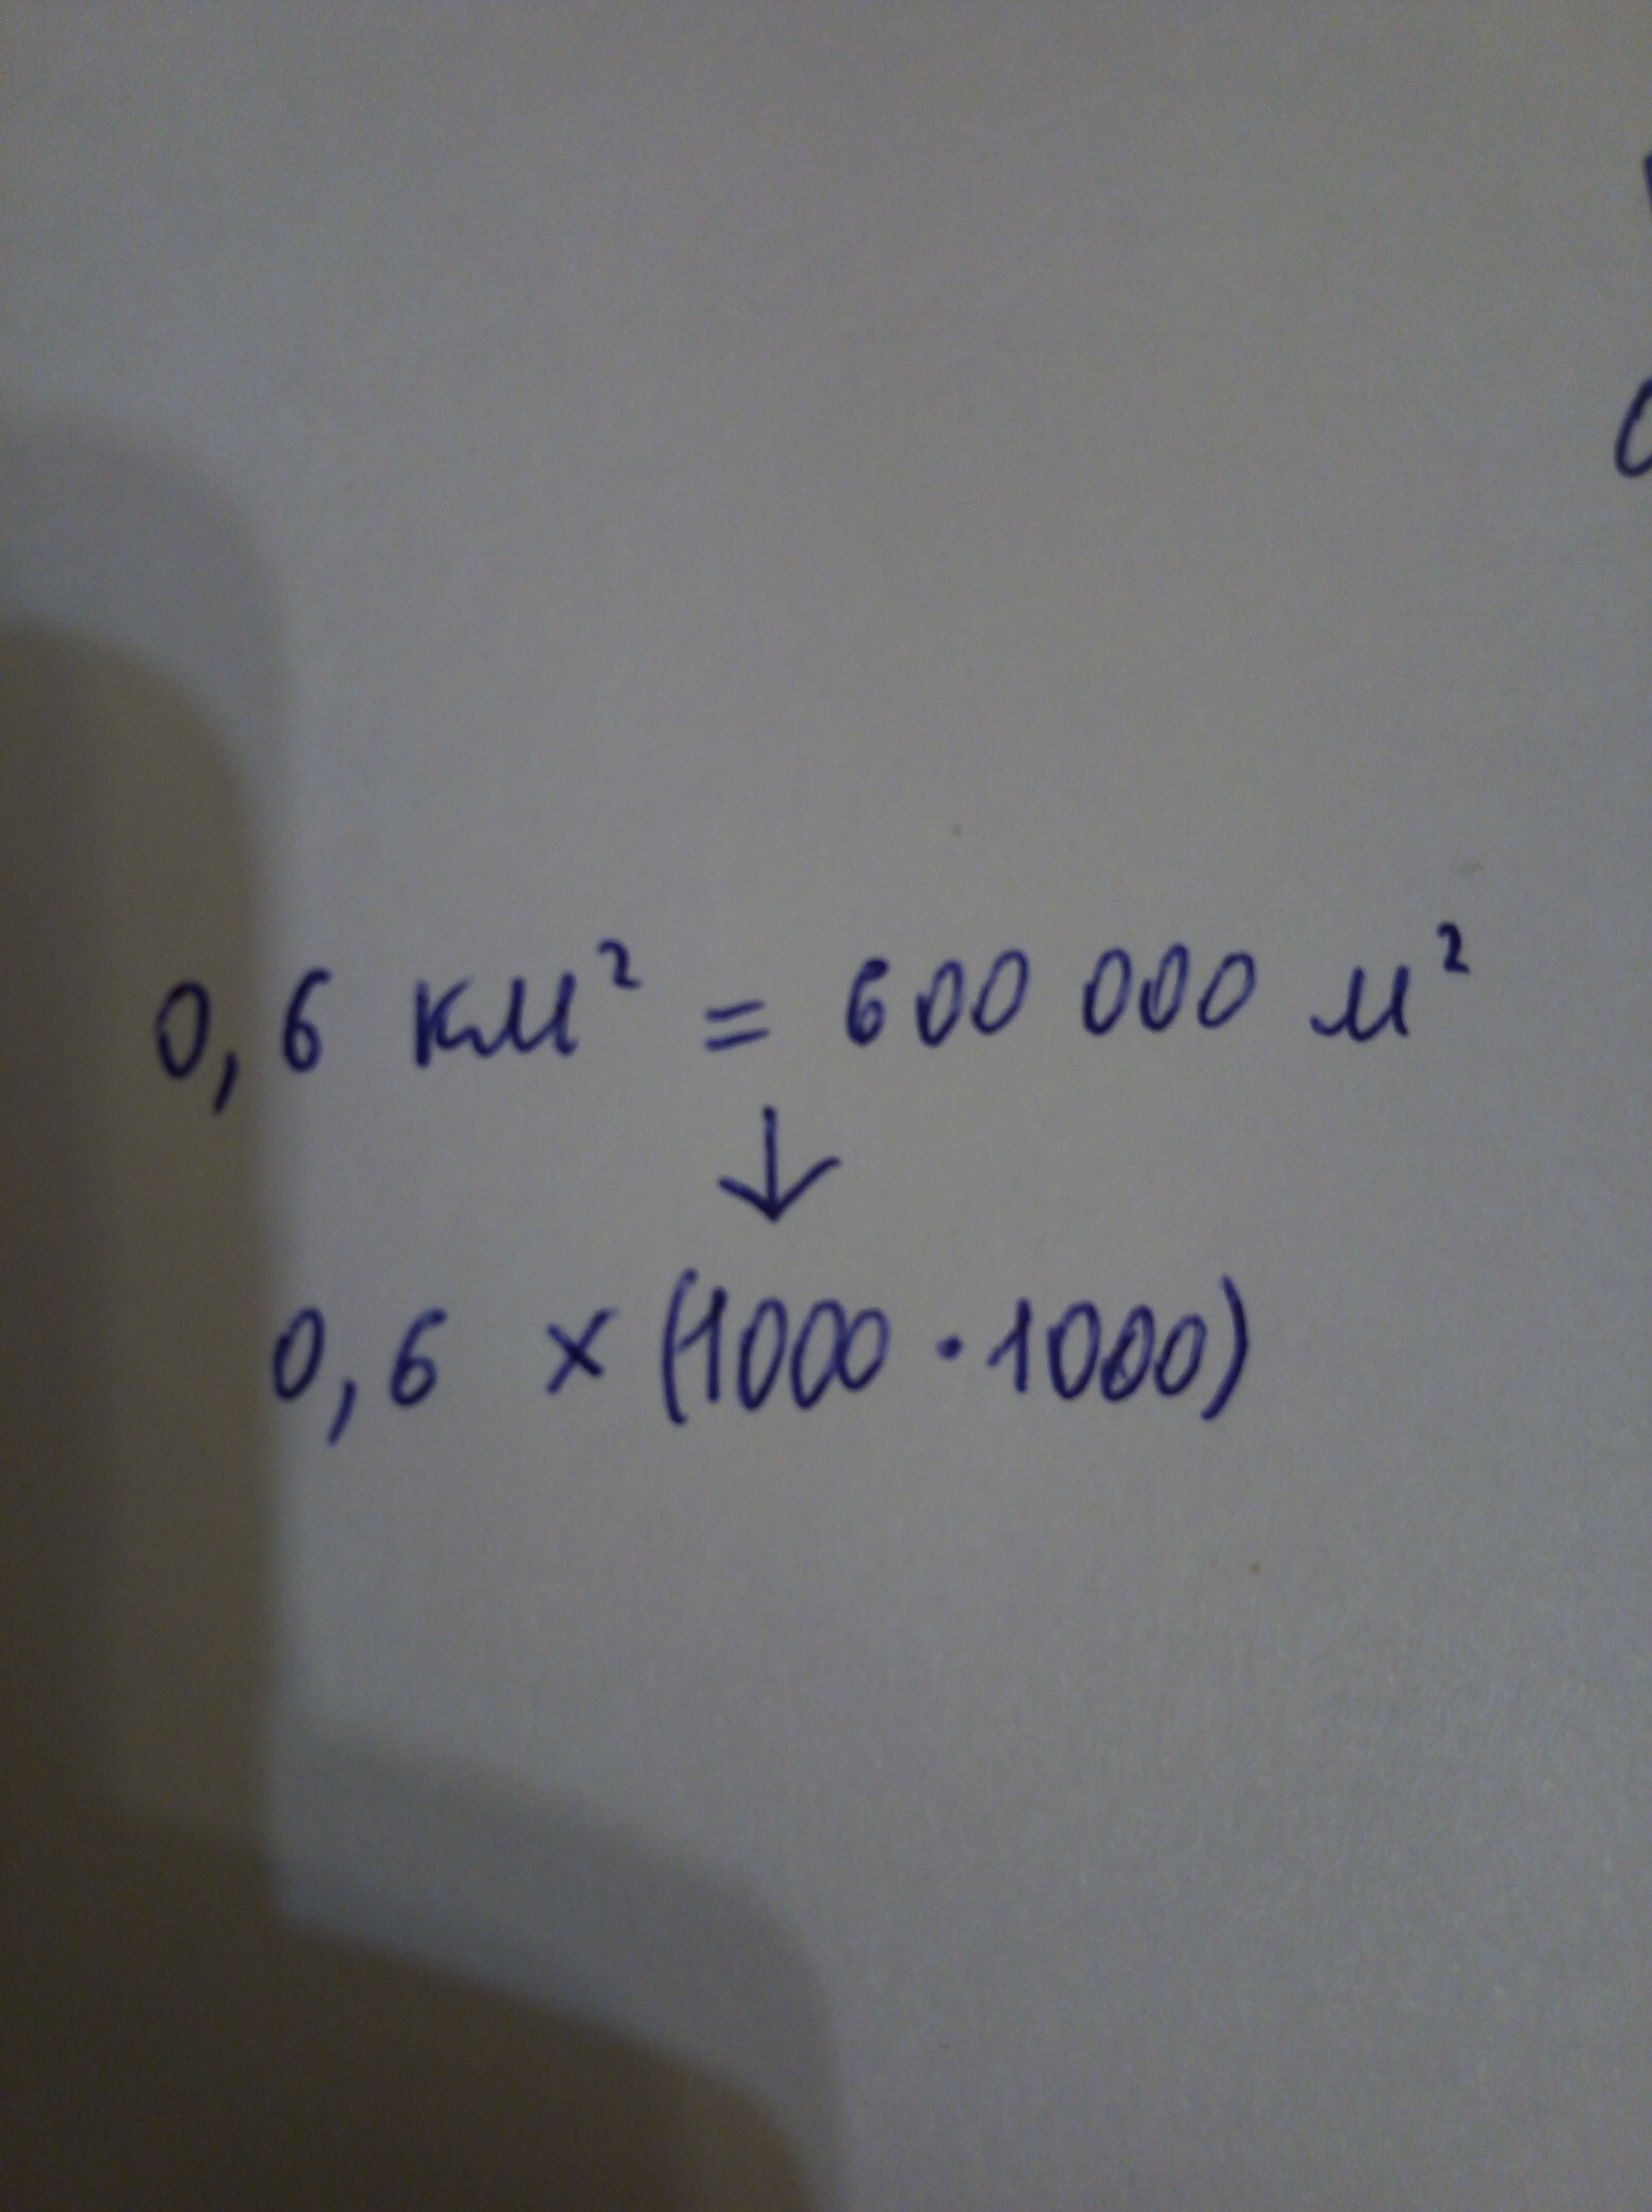 0,6 км² = 600 000 м²
↓
0,6 × (1000 · 1000)